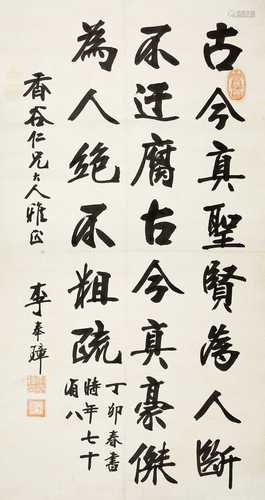 古今真聖賢為人斷
不迂腐古今真豪傑
為人絕不粗疏
丁卯春書
時年七十
有八
香谷仁兄大人雅正
李奉璋